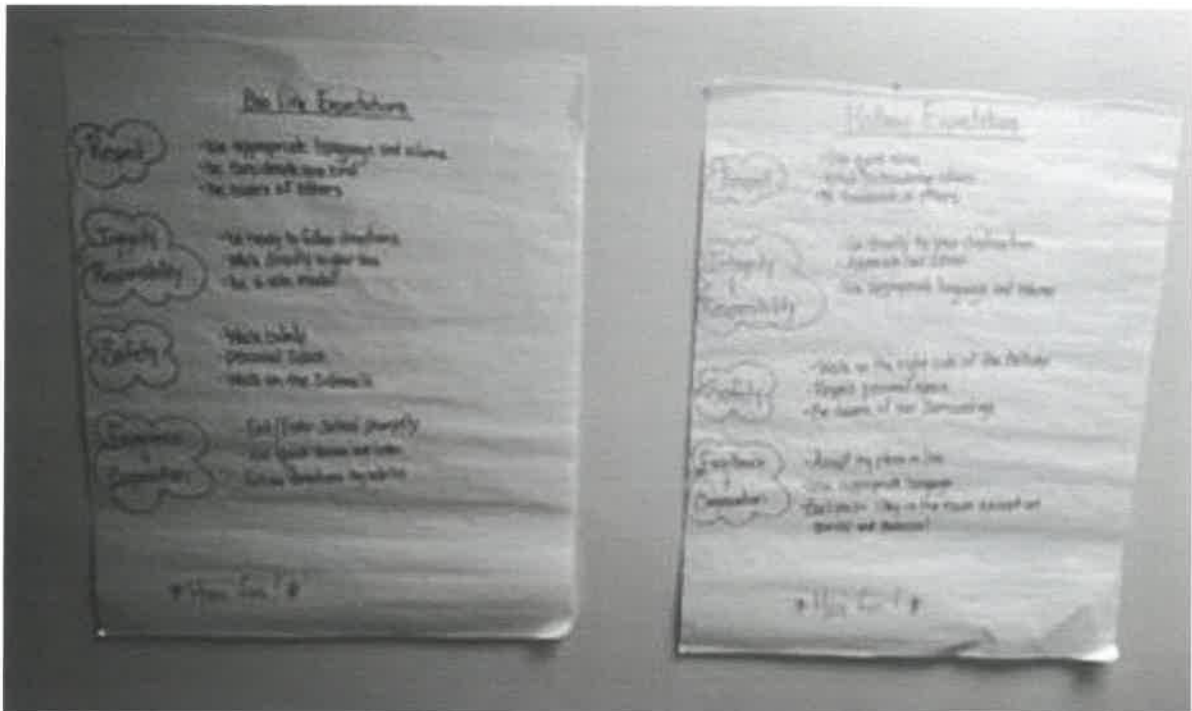 Bus Line Expectations
Respect
-Use appropriate language and volume
-Be considerate and kind
-Be aware of others
Integrity
Responsibility
-Be ready to follow directions
-Walk directly to your bus
-Be a role model
Safety
-Walk calmly
-Personal Space
-Walk on the Sidewalk
Cooperation
-Exit/Enter School promptly
-Follow directions by adults
*Have Fun!*
Hallway Expectations
Respect
-Use quiet voice
-Be considerate of others
Integrity
&
Responsibility
-Go directly to your destination
-Appreciate our school
-Use appropriate language and volume
Safety
-Walk on the right side of the hallway
-Respect personal space
-Be aware of our Surroundings
Excellence
&
Cooperation
-Accept my place in line
-Use appropriate language
Stay in the room
*Have Fun!*